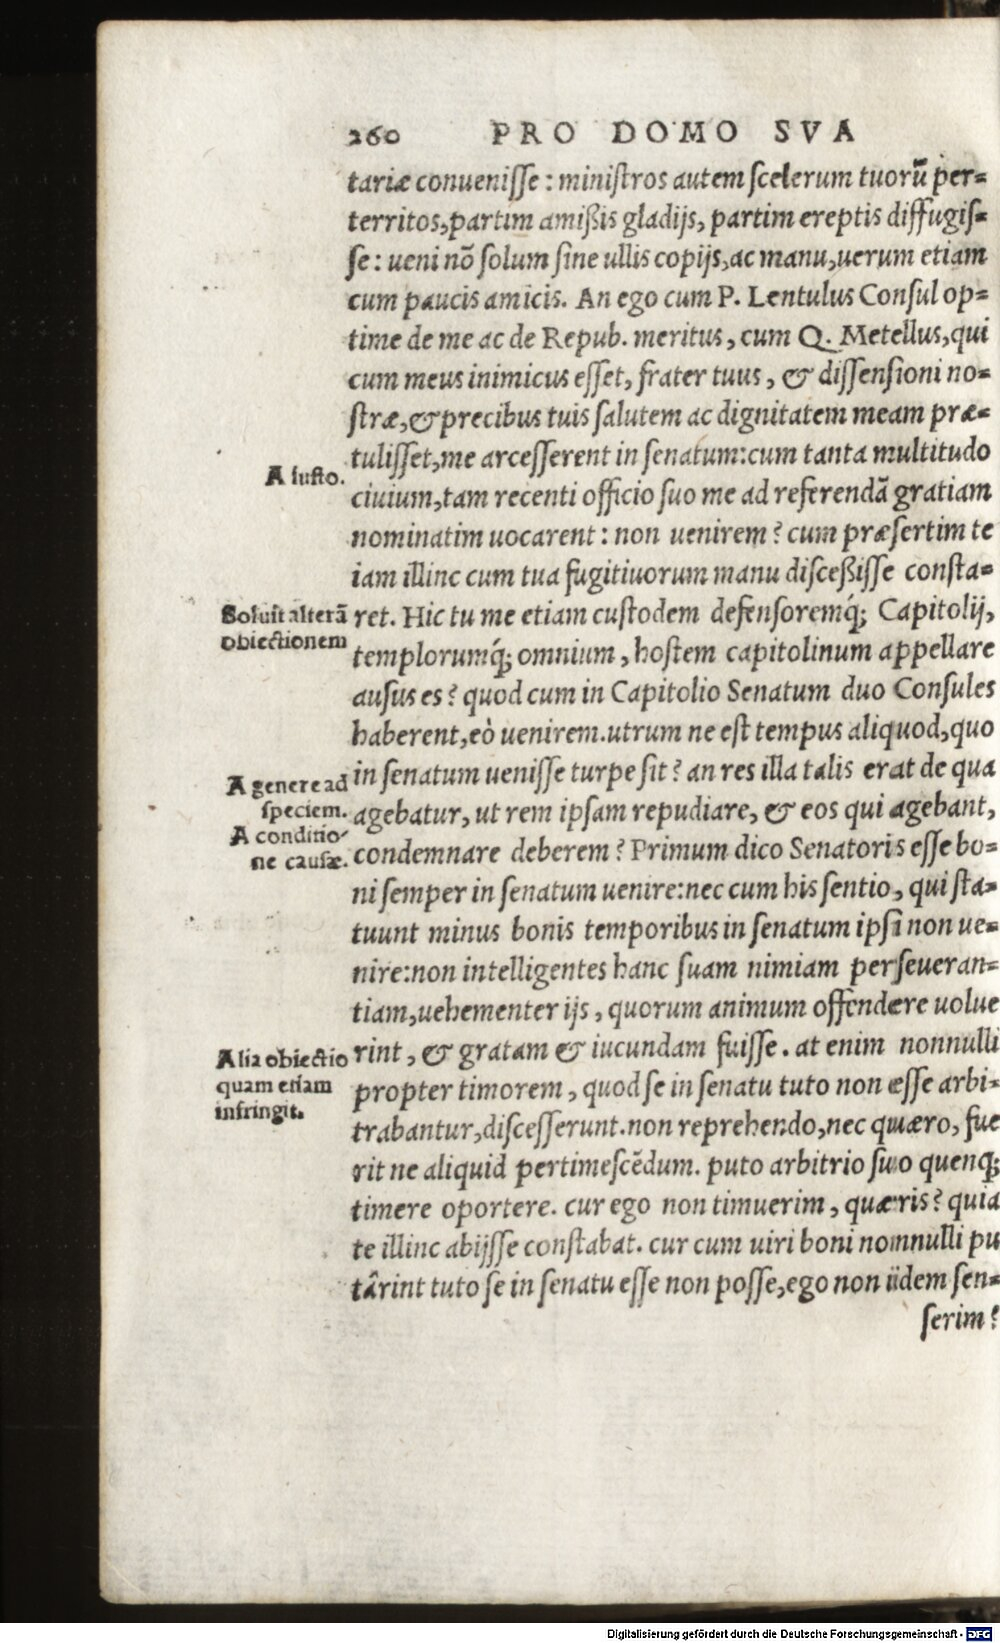 260 PRO DOMO SVA
tariæ conuenisse: ministros autem scelerum tuorū per=
territos, partim amißis gladijs, partim ereptis diffugis=
se: ueni nō solum sine ullis copijs, ac manu, uerum etiam
cum paucis amicis. An ego cum P. Lentulus Consul op=
time de me ac de Repub. meritus, cum Q. Metellus, qui
cum meus inimicus esset, frater tuus, & dissensioni no=
stræ, & precibus tuis salutem ac dignitatem meam præ=
tulisset, me arcesserent in senatum: cum tanta multitudo
A iusto.
ciuium, tam recenti officio suo me ad referendā gratiam
nominatim uocarent: non uenirem? cum præsertim te
iam illinc cum tua fugitiuorum manu disceßisse consta=
Soluit alterā
obiectionem
ret. Hic tu me etiam custodem defensoremq́; Capitolij,
templorumq́; omnium, hostem capitolinum appellare
ausus es? quod cum in Capitolio Senatum duo Consules
haberent, eò uenirem. utrum ne est tempus aliquod, quo
A genere ad
speciem.
A conditio-
ne causæ.
in senatum uenisse turpe sit? an res illa talis erat de qua
agebatur, ut rem ipsam repudiare, & eos qui agebant,
condemnare deberem? Primum dico Senatoris esse bo=
ni semper in senatum uenire: nec cum his sentio, qui sta=
tuunt minus bonis temporibus in senatum ipsi non ue=
nire: non intelligentes hanc suam nimiam perseueran=
tiam, uehementer ijs, quorum animum offendere uolue
Alia obiectio
quam etiam
infringit.
rint, & gratam & iucundam fuisse. at enim nonnulli
propter timorem, quod se in senatu tuto non esse arbi=
trabantur, discesserunt. non reprehendo, nec quæro, fue
rit ne aliquid pertimescēdum. puto arbitrio suo quenq;
timere oportere. cur ego non timuerim, quæris? quia
te illinc abijsse constabat. cur cum uiri boni nonnulli pu
târint tuto se in senatu esse non posse, ego non iidem sen=
serim?
Digitalisierung gefördert durch die Deutsche Forschungsgemeinschaft - DFG